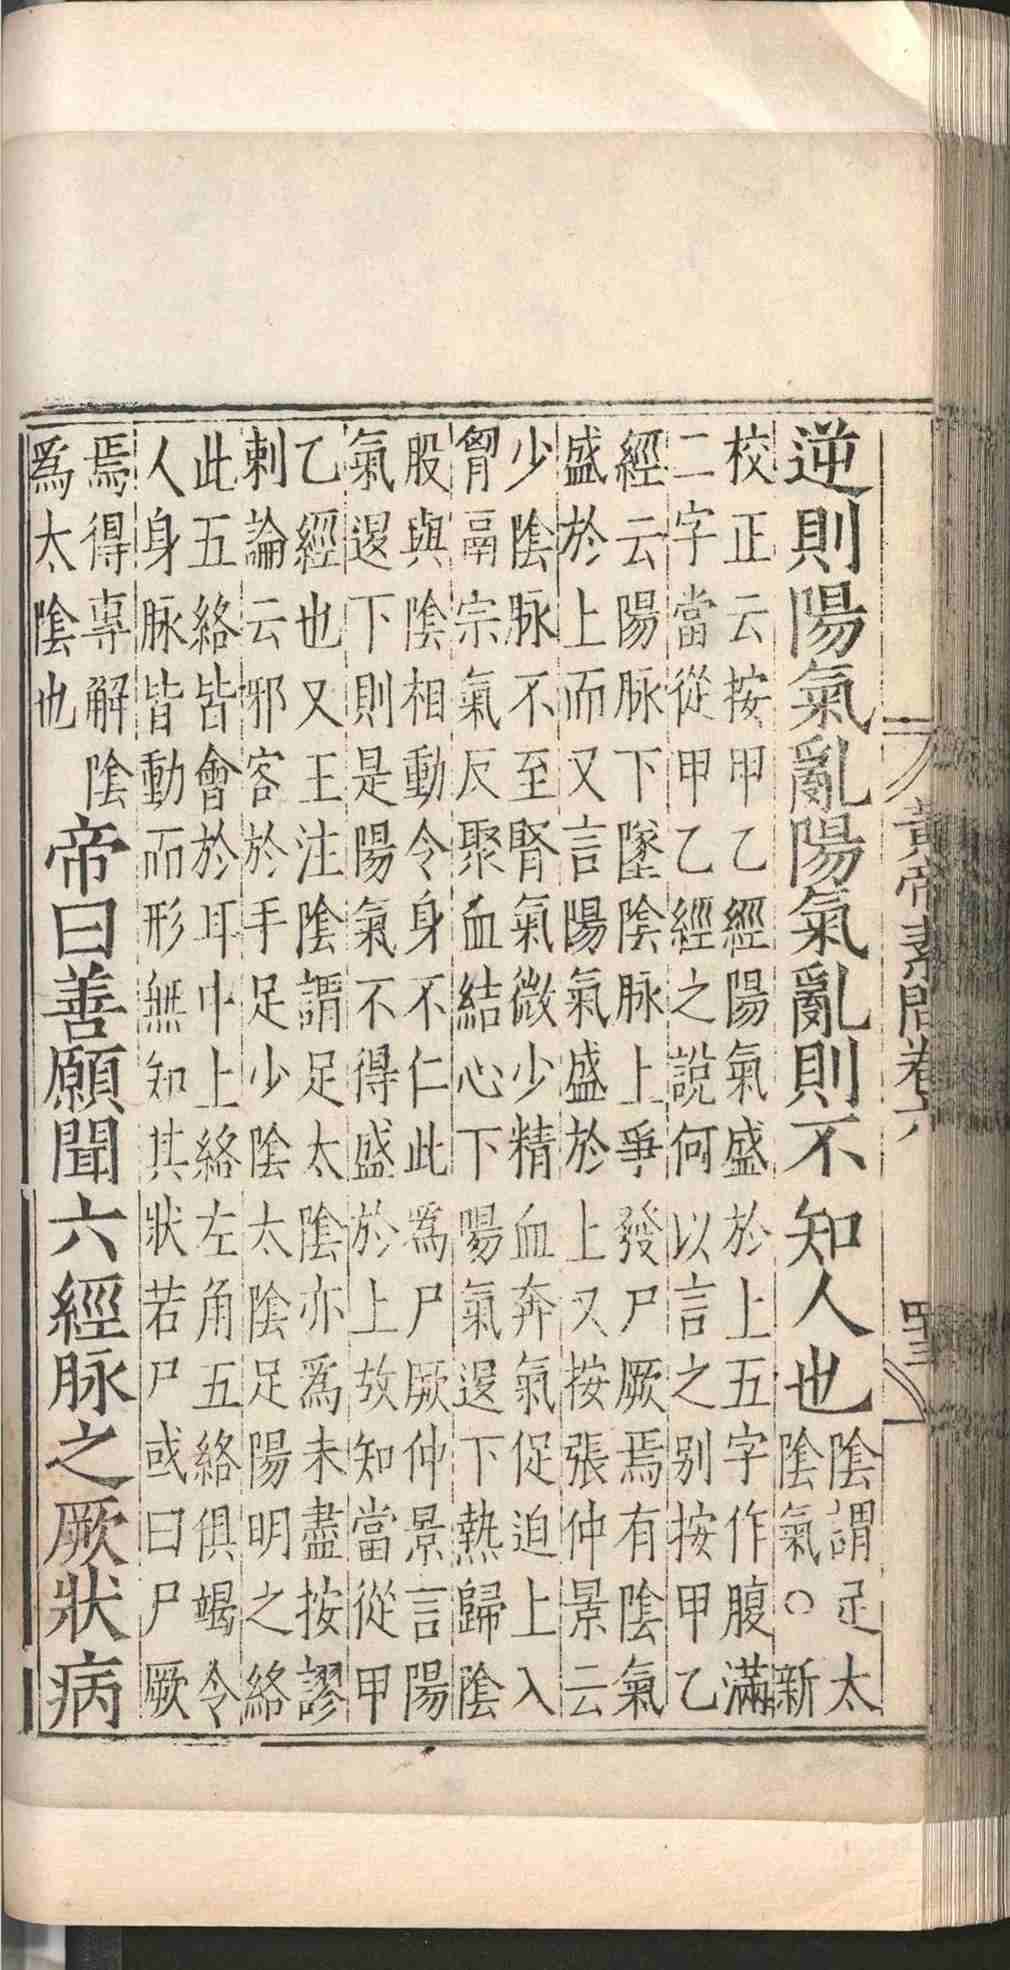 黃帝素問卷六 四三
逆則陽氣亂陽氣亂則不知人也
陰謂足太
陰氣○新
校正云按甲乙經陽氣盛於上五字作腹滿
二字當從甲乙經之說何以言之别按甲乙
經云陽脉下墜陰脉上爭發尸厥焉有陰氣
盛於上而又言陽氣盛於上又按張仲景云
少陰脉不至腎氣微少精血奔氣促迫上入
胷鬲宗氣反聚血結心下陽氣退下熱歸陰
股與陰相動令身不仁此爲尸厥仲景言陽
氣退下則是陽氣不得盛於上故知當從甲
乙經也又王注陰謂足太陰亦爲未盡按謬
刺論云邪客於手足少陰太陰足陽明之絡
此五絡皆會於耳中上絡左角五絡俱竭令
人身脉皆動而形無知其狀若尸或曰尸厥
焉得專解陰
爲太陰也
帝曰善願聞六經脉之厥狀病